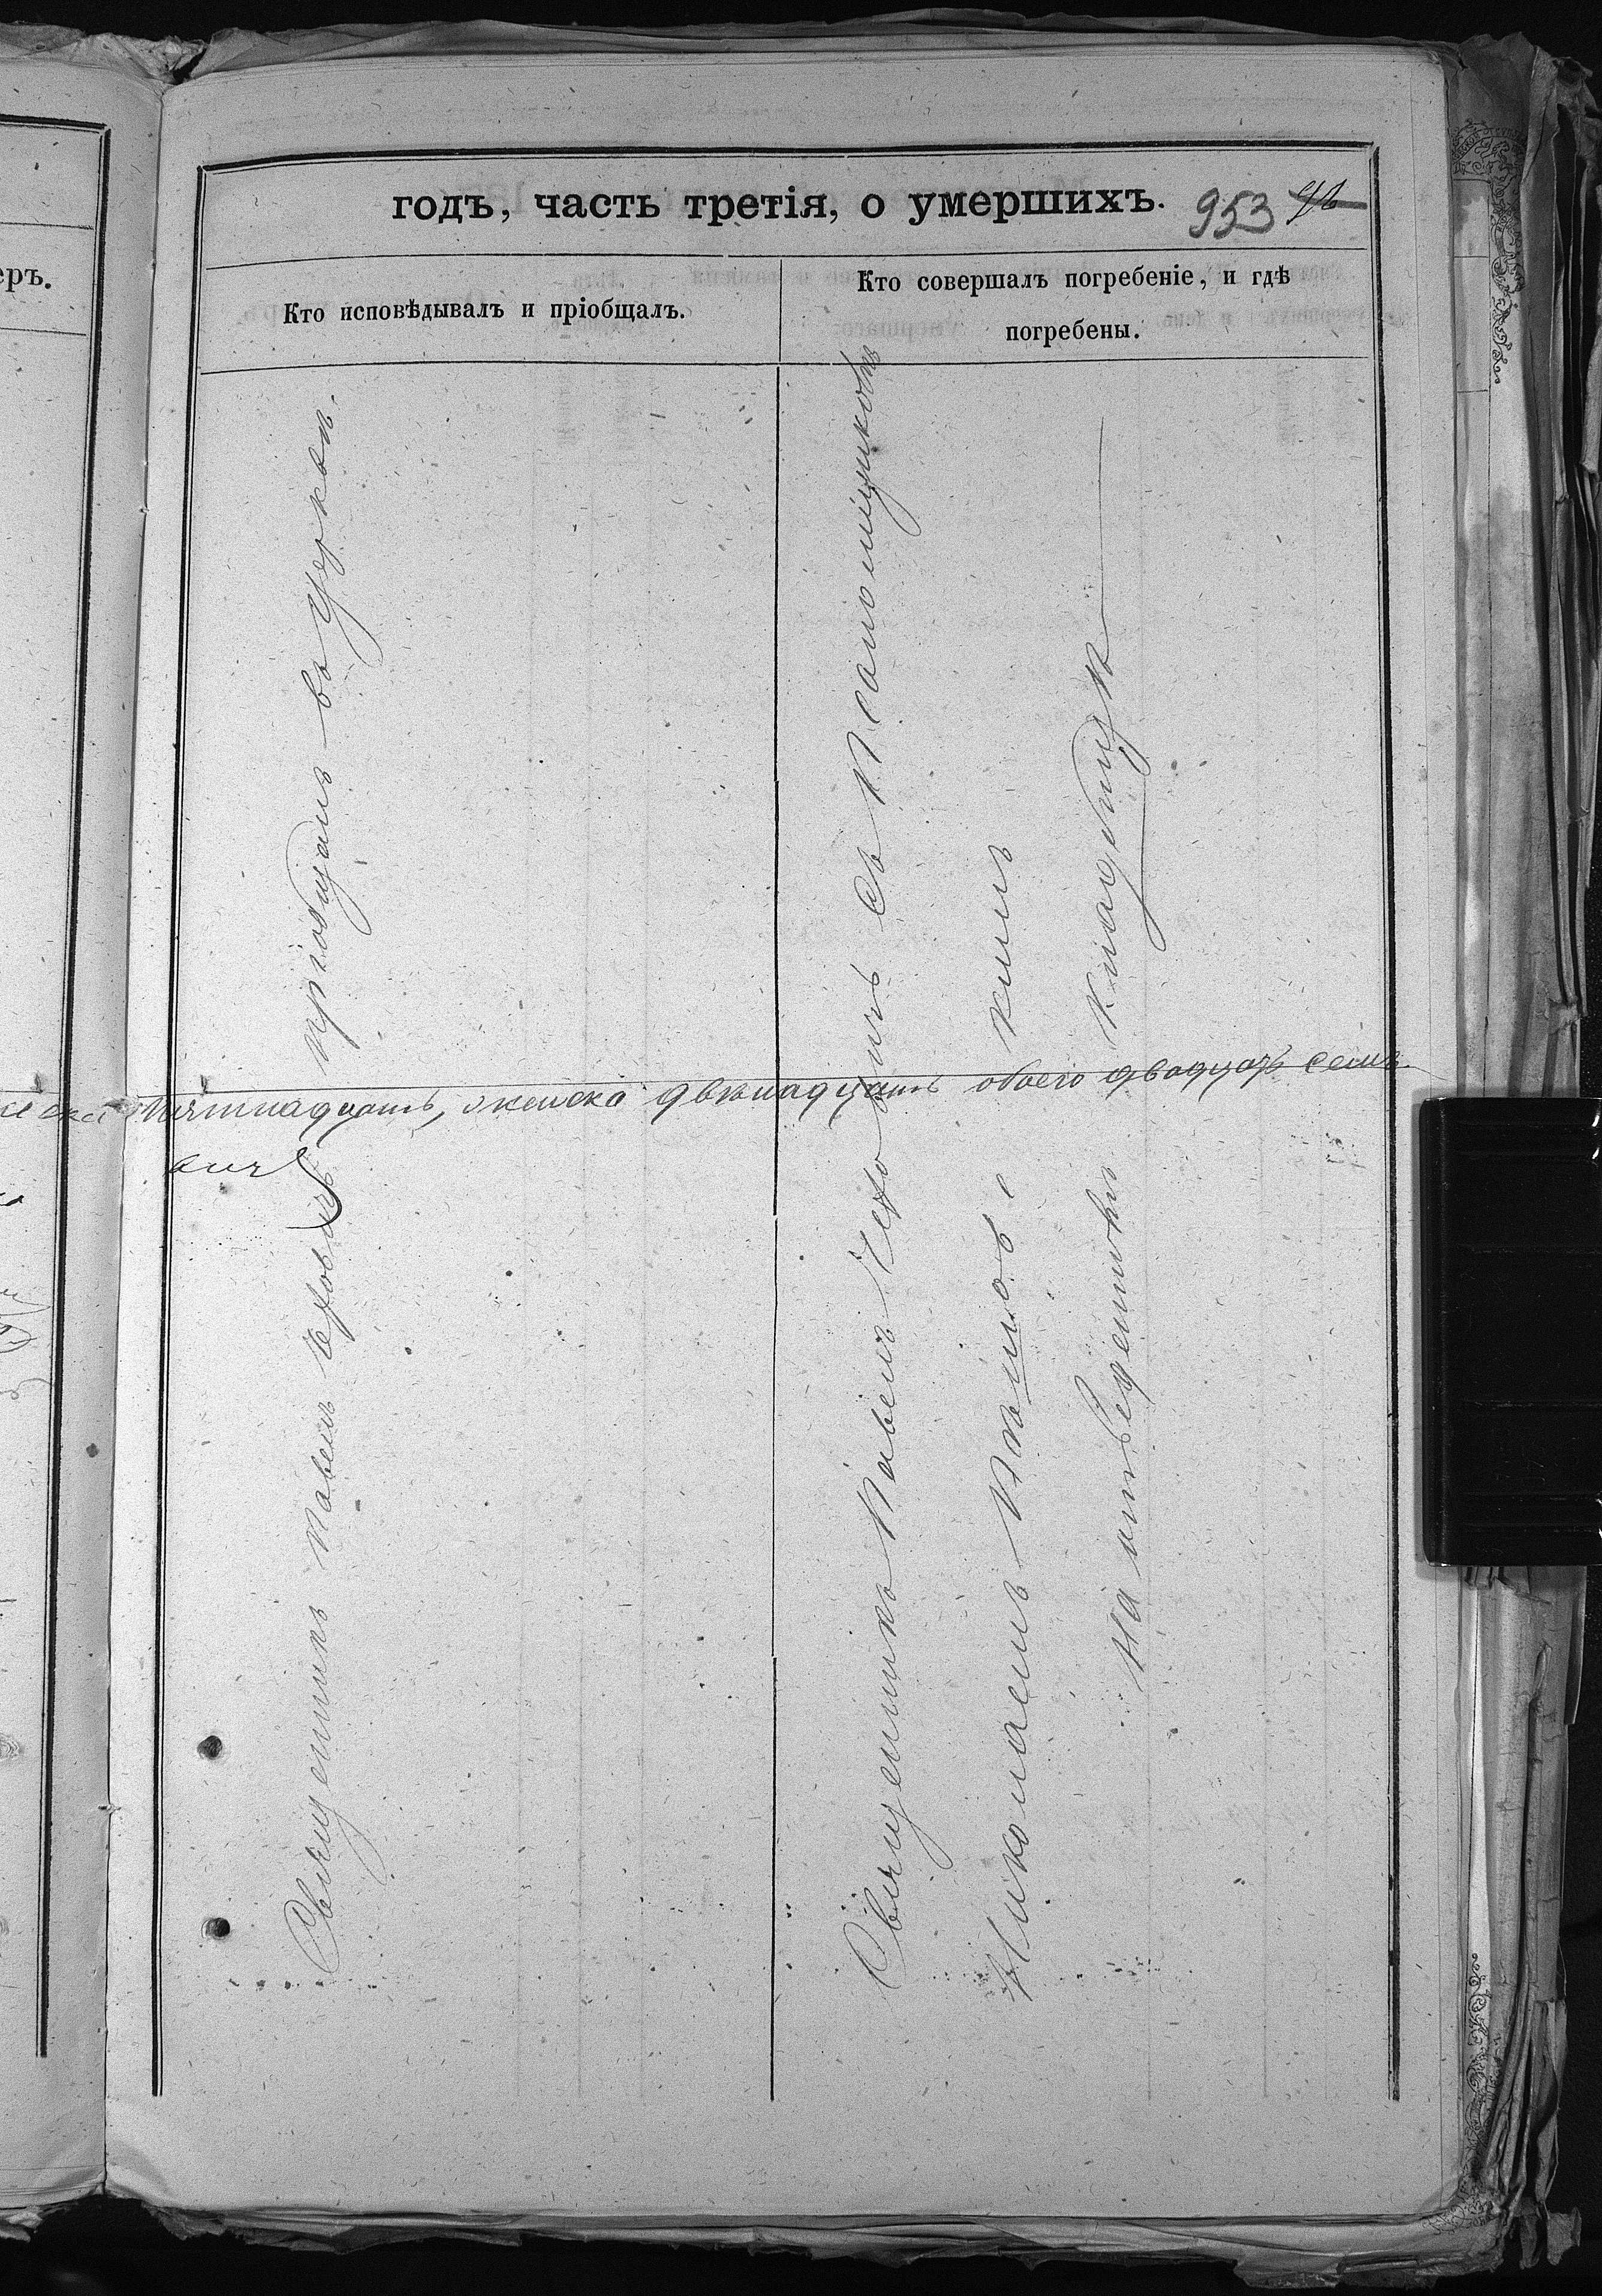 еръ.
годъ, часть третія, о умершихъ. 953
Кто исповѣдывалъ и пріобщалъ.
Кто совершалъ погребеніе, и гдѣ
погребены.
Священникъ Павелъ пріобщалъ въ церкви.
Священникъ Павелъ съ Псаломщикомъ
Николаемъ
На отведенномъ кладбищѣ
пятнадцать, женска двѣнадцать обоего двадцать семь.